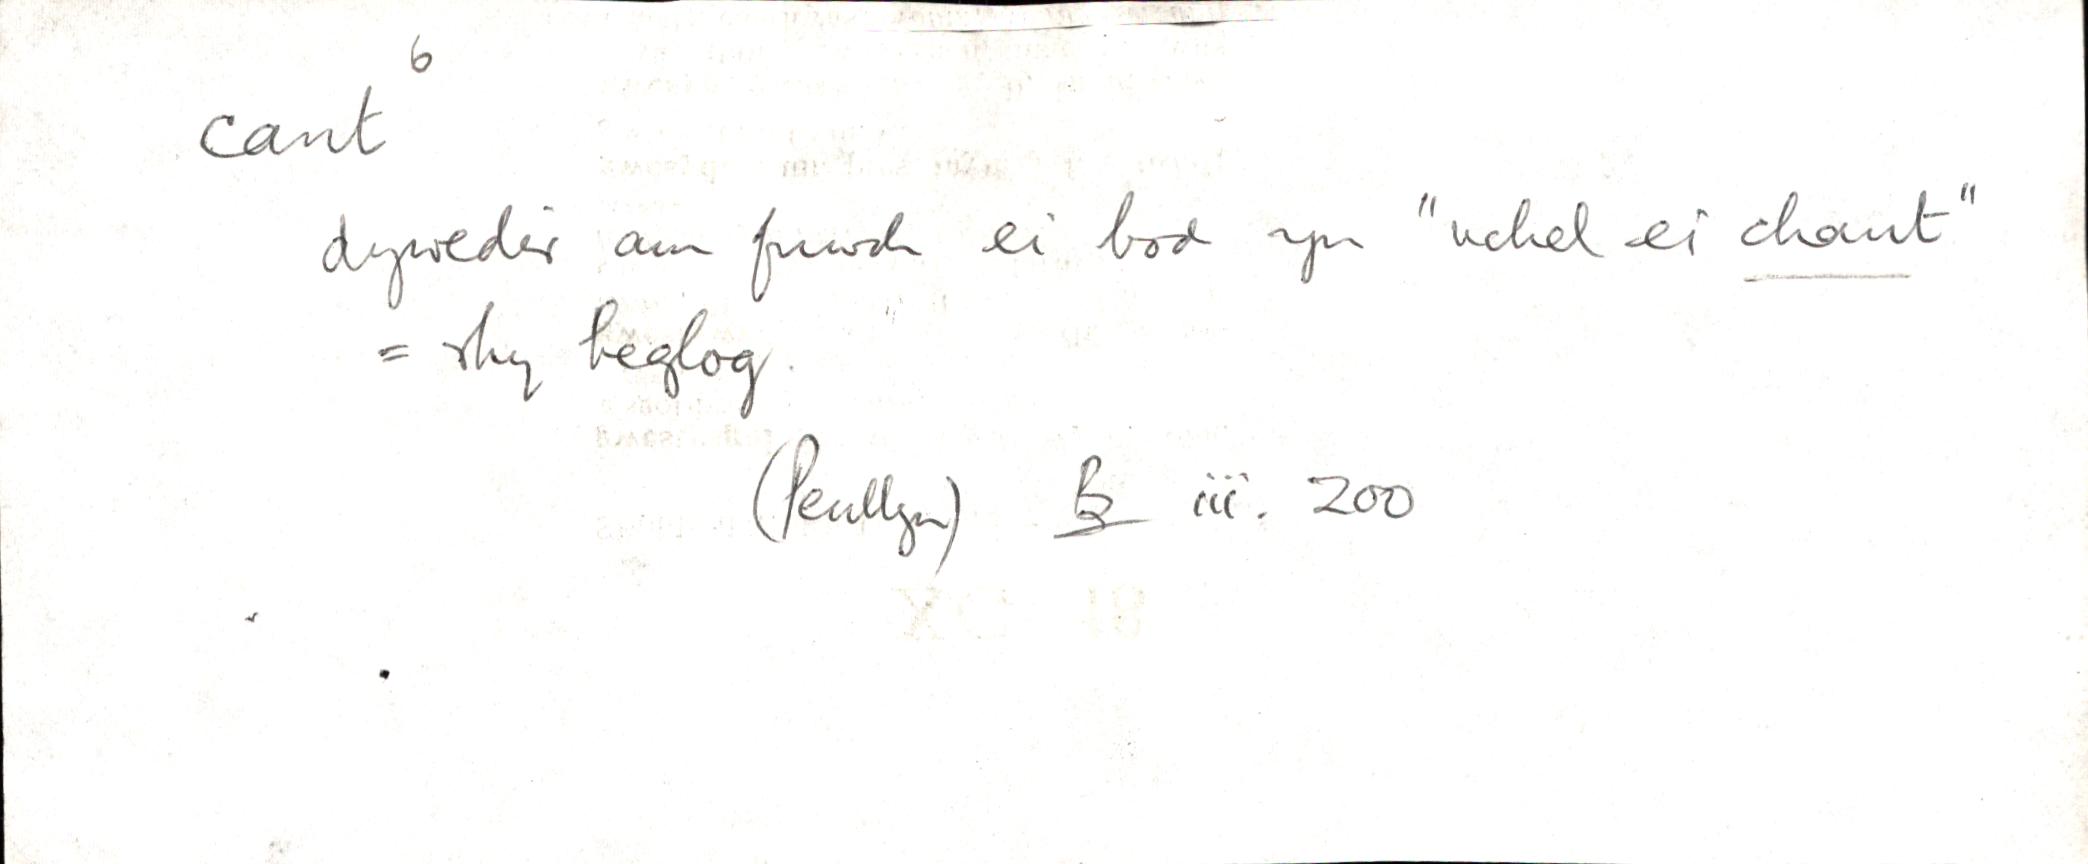 cant⁶
dywedir am fuwch ei bod yn "uchel ei chant"
= rhy heglog.
(Penllyn) B iii. 200